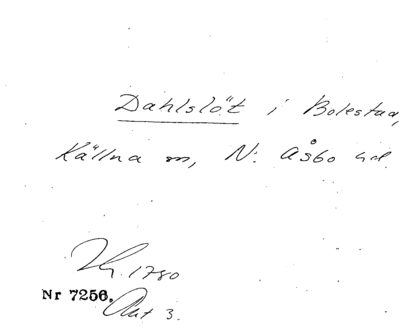 Dahlslöt i Bolestad,
Källna sn, N. Åsbo hd.
1780
Nr 7256. Akt 3.